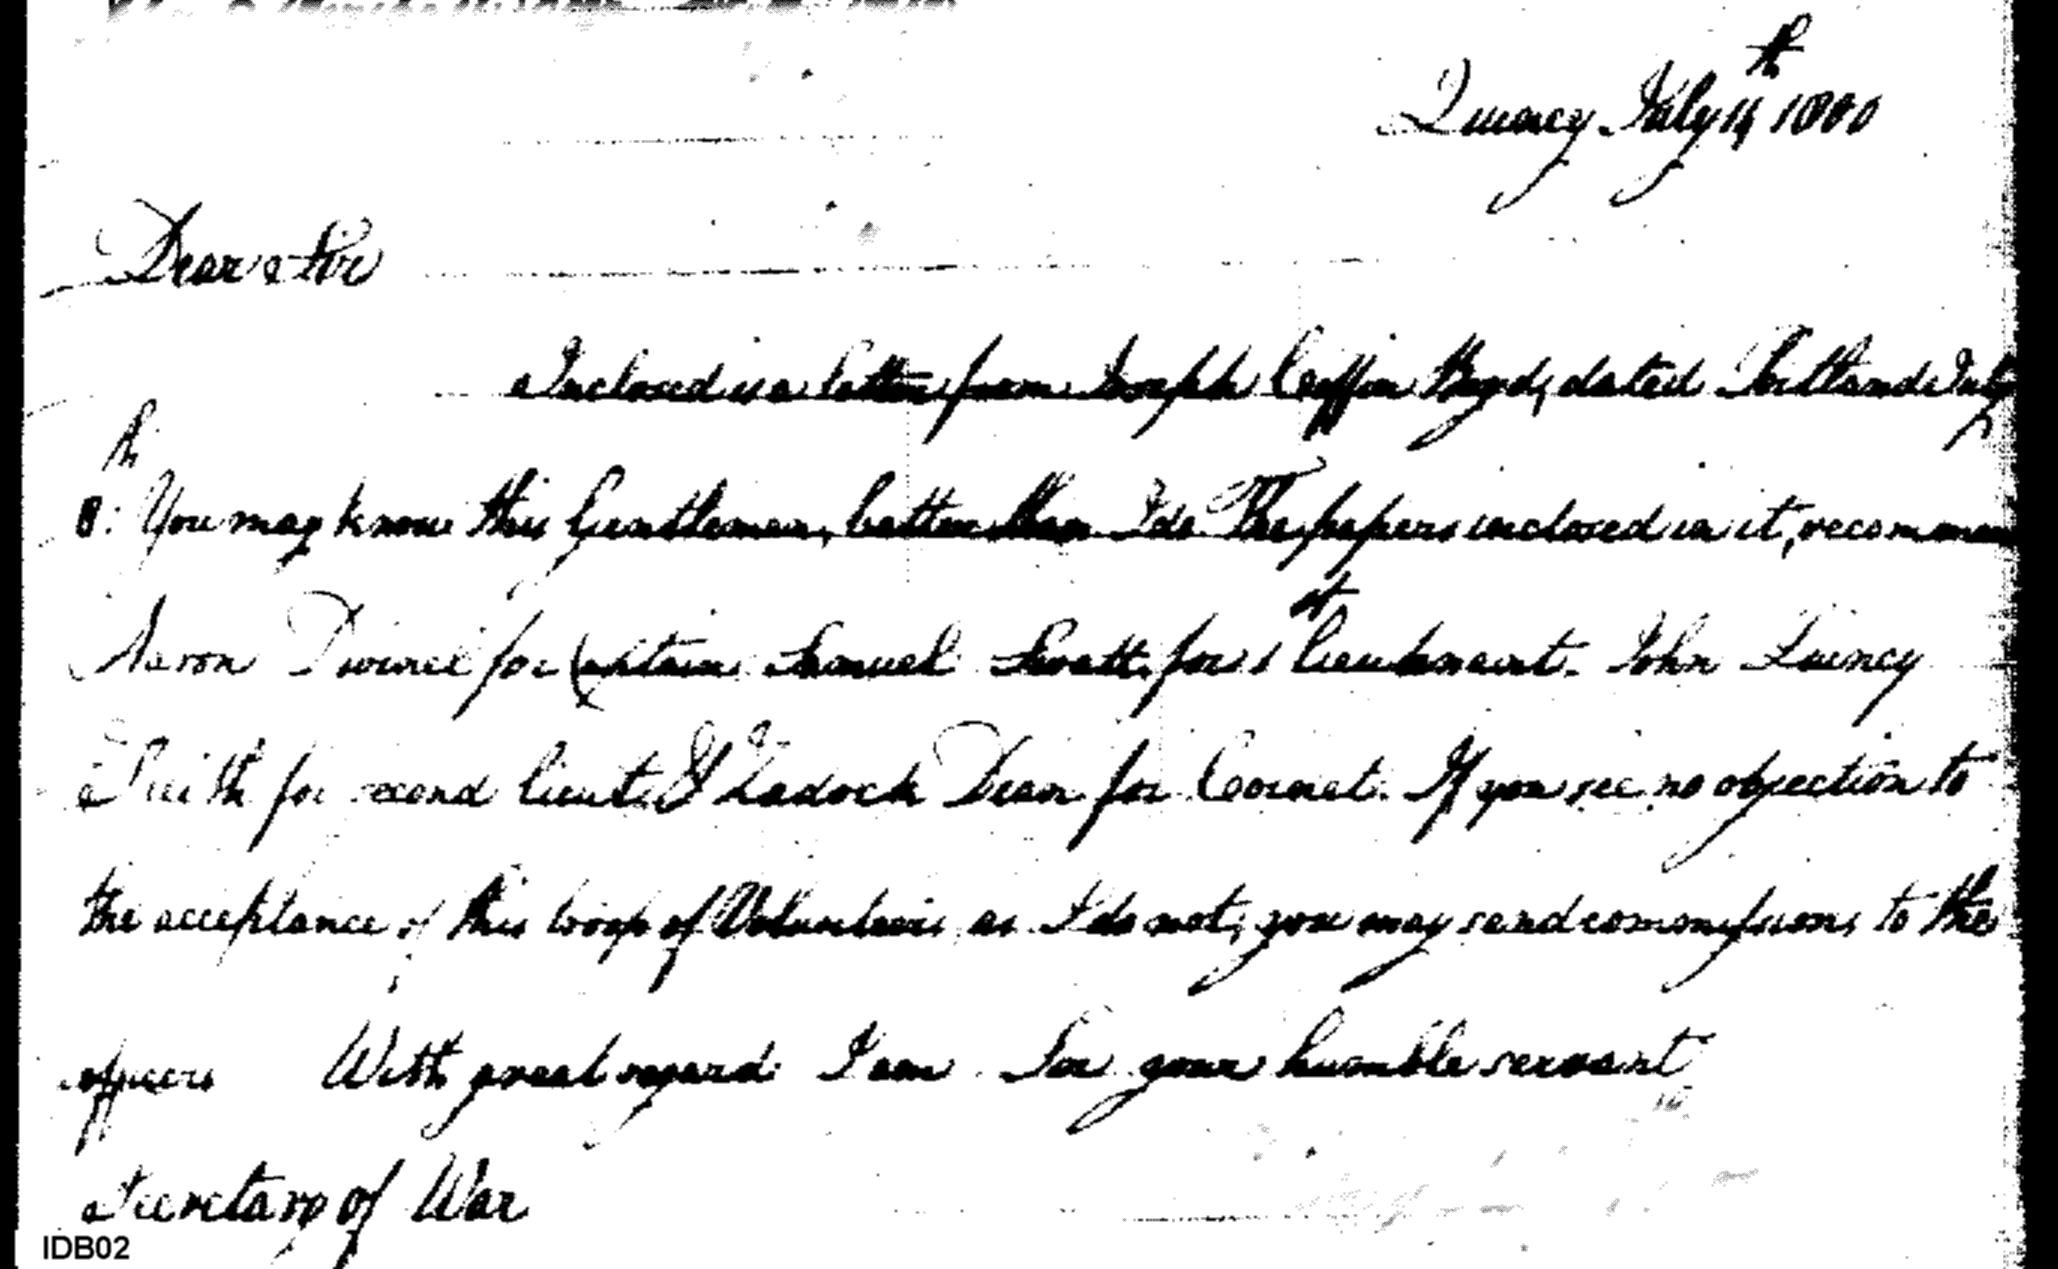 Quincy July 14th 1800
Dear Sir
Inclosed is a letter from Joseph Coffin Boyd, dated Portland July
8th: You may know this Gentleman, better than I do The papers inclosed in it, recommen
Aaron for Captain Samuel for 1st lieutenant. John Quincy
for second lieut. & Zadock Dean for Cornet. If you see no objection to
the acceptance of this troop of Volunteers as I do not, you may send commissions to the
officers With great regard I am Sir your humble servant
Secretary of War
IDB02